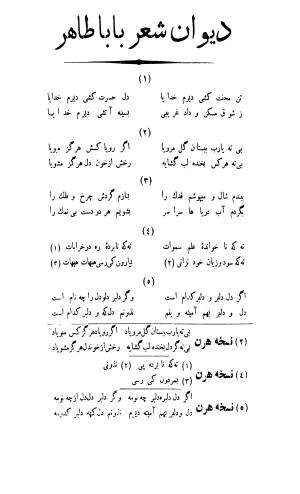 دیوان شعر باباطاهر
(۱)
تن محنت کشی دیرم خدایا دل حسرت کشی دیرم خدایا
ز شوق مسکن و داد غریبی بسینه آتشی دیرم خدایا
(۲)
بی ته یارب ببستان گل مرویا اگر رویا کسش هرگز مبویا
بی ته هر کس بخنده لب گشایه رخش از خون دل هرگز مشویا
(۳)
ببندم شال و میپوشم قدک را بنازم گردش چرخ و فلک را
بگردم آب دریاها سراسر بشویم هر دو دست بی نمک را
(۴)
ته که ناخواندهٔ علم سموات ته که نابردهٔ ره در خرابات (۱)
ته که سود و زیان خود نزانی (۲) بیارون کی رسی هیهات هیهات (۳)
(۵)
اگر دل دلبر و دلبر کدام است وگر دلبر دل و دل را چه نام است
دل و دلبر بهم آمیته وینم ندونم دل که و دلبر کدام است
(۲) نسخه هرن
بی ته یارب ببستان گل مروياد اگر روياد هرگز کس مبویاد
بی ته گر دل بخنده لب گشایه رخش از خون دل هرگز مشویاد
(۴) نسخه هرن (۱) ته که نا برده پی (۲) نذونی
(۳) بمردون کی رسی
(۵) نسخه هرن
اگر دل دلبره دلبر چه نومه وگر دلبر دل دل از چه نومه
دل و دلبر بهم آمیته دیرم ندونم دل که و دلبر کدومه